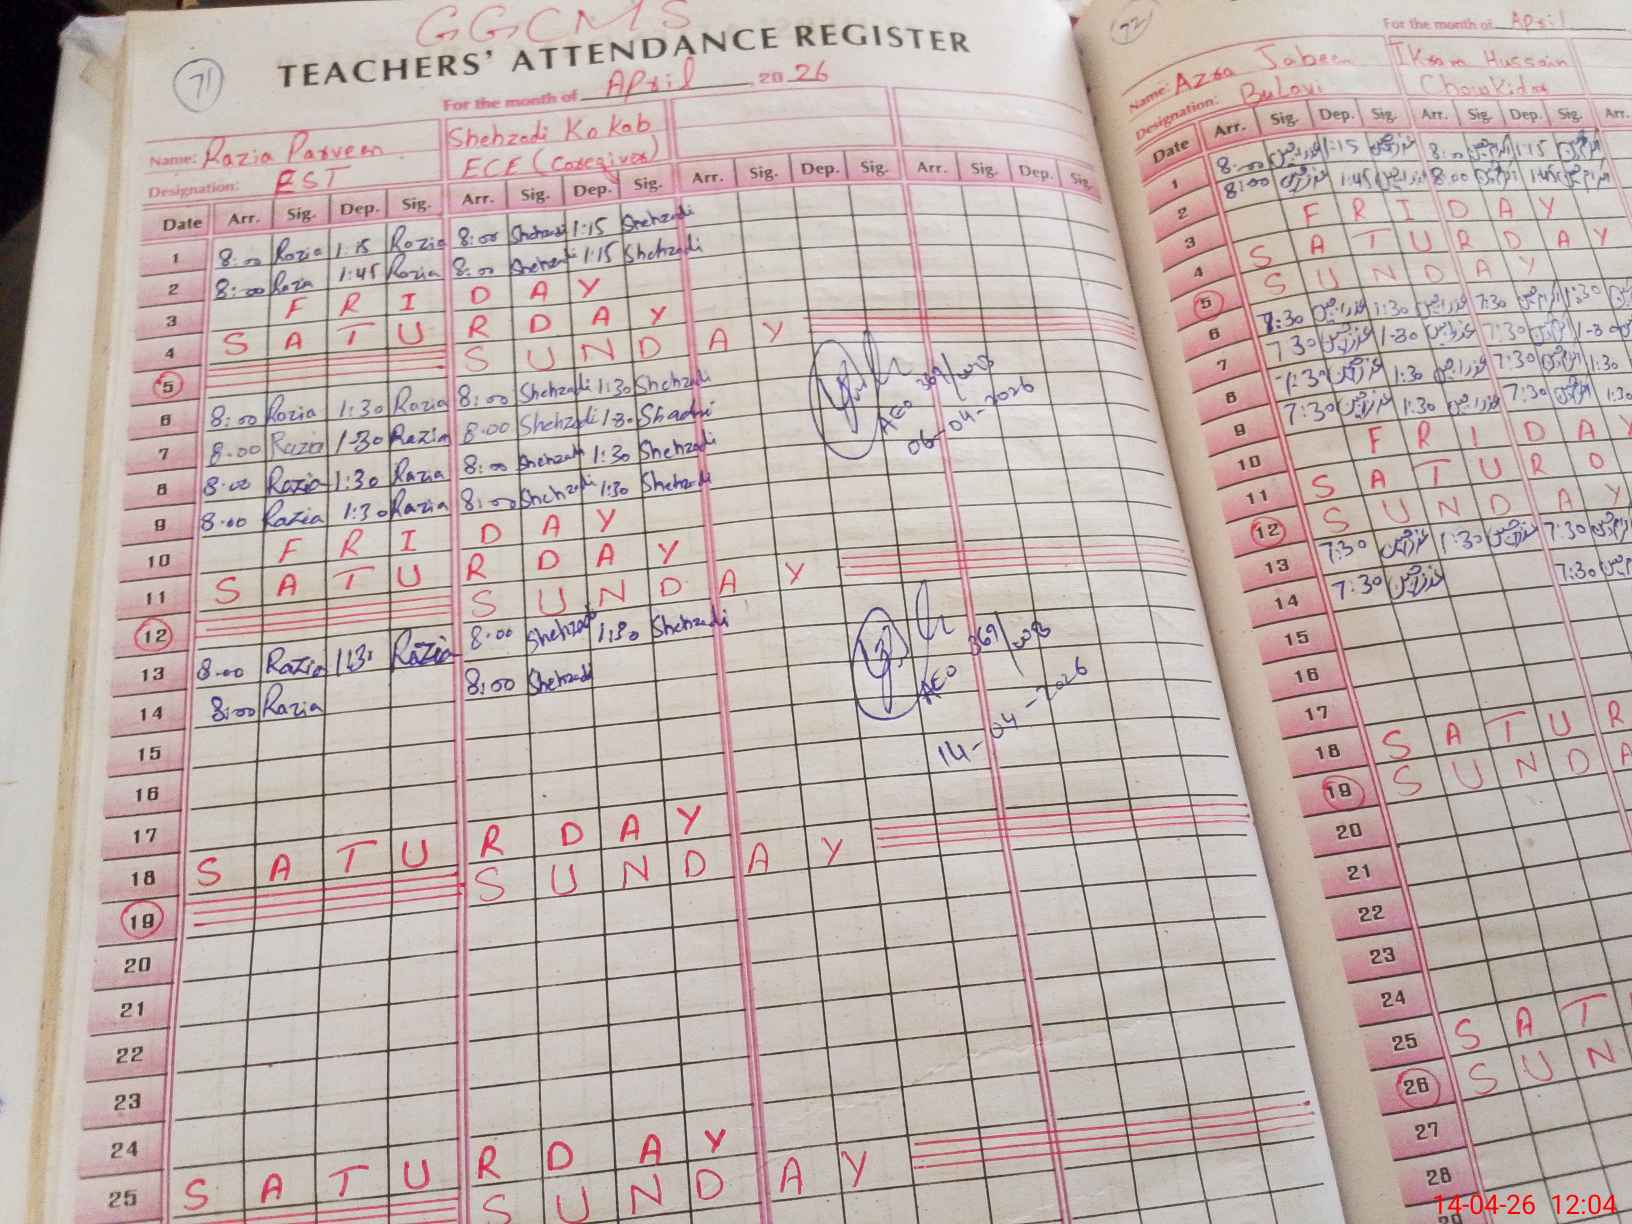 GGCMS
71 TEACHERS' ATTENDANCE REGISTER
For the month of April 20 26
Name: Razia Parveen Shehzadi Kokab
Designation: EST ECE (Caregiver)
Date Arr. Sig. Dep. Sig. Arr. Sig. Dep. Sig. Arr. Sig. Dep. Sig. Arr. Sig. Dep. Sig.
1 8:00 Razia 1:15 Razia 8:00 Shehzadi 1:15 Shehzadi
2 8:00 Razia 1:45 Razia 8:00 Shehzadi 1:15 Shehzadi
3 F R I D A Y
4 S A T U R D A Y
5 S U N D A Y
6 8:00 Razia 1:30 Razia 8:00 Shehzadi 1:30 Shehzadi
7 8.00 Razia 1-30 Razia 8.00 Shehzadi 1-30
8 8.00 Razia 1:30 Razia 8:00 Shehzadi 1:30 Shehzadi
9 8.00 Razia 1:30 Razia 8:00 Shehzadi 1:30 Shehzadi
AEO
06-04-2026
10 F R I D A Y
11 S A T U R D A Y
12 S U N D A Y
13 8.00 Razia 1:30 Razia 8.00 Shehzadi 1:30 Shehzadi
14 8:00 Razia 8:00 Shehzadi
AEO
14-04-2026
15
16
17
18 S A T U R D A Y
19 S U N D A Y
20
21
22
23
24
25 S A T U R D A Y
S U N D A Y
72 For the month of April
Name: Azra Jabeen Ikram Hussain
Designation: Bulavi Chowkidar
Date Arr. Sig. Dep. Sig. Arr. Sig. Dep. Sig. Arr.
1 8:00 1:15 8:00 1:15
2 8:00 1:45 8:00 1:45
3 F R I D A Y
4 S A T U R D A Y
5 S U N D A Y
6 7:30 1:30 7:30 1:30
7 7 30 1-30 7:30 1-30
8 7:30 1:30 7:30 1:30
9 7:30 1:30 7:30 1:30
10 F R I D A Y
11 S A T U R D
12 S U N D A Y
13 7:30 1:30 7:30
14 7:30 7:30
15
16
17
18 S A T U R
19 S U N D A
20
21
22
23
24
25 S A T
26 S U N
27
28
14-04-26 12:04